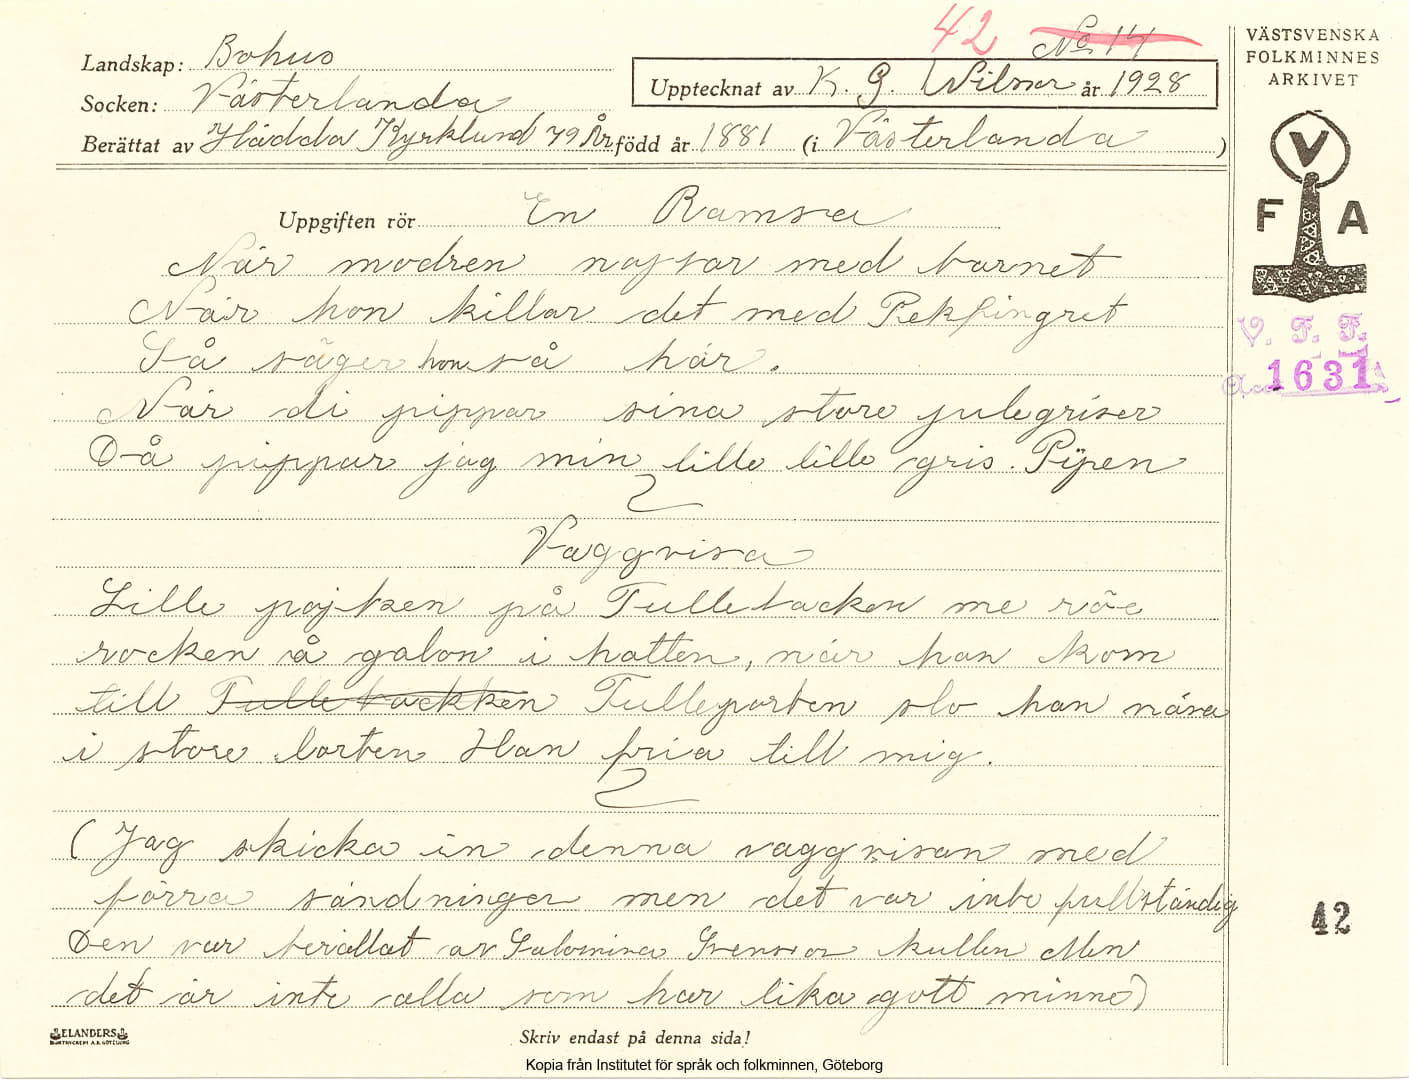 42 No 14
Landskap: Bohus
Socken: Västerlanda
Upptecknat av K. G. Wilner år 1928
Berättat av Hädda Kyrklund 79 År född år 1881 (i Västerlanda)
VÄSTSVENSKA
FOLKMINNES
ARKIVET
V
F A
V. F. F.
1631
Uppgiften rör En Ramsa
När modren nojsar med barnet
När hon killar det med Pekfingret
Så säger hon så här.
När di pippar sina store julegriser
Då pippar jag min lille lille gris. Pipen
Vaggvisa
Lille pojken på Tullebacken me röe
rocken å galon i hatten, när han kom
till Tullebackken Tulleporten slo han nära
i store lorten Han fria till mig.
(Jag skicka in denna vaggvisan med
förra sändningen men det var inte fullständig
Den var berättat av Salomina Svenson kullen Men
det är inte alla som har lika gott minne)
42
ELANDERS
BOKTRYCKERI A.B. GÖTEBORG
Skriv endast på denna sida!
Kopia från Institutet för språk och folkminnen, Göteborg